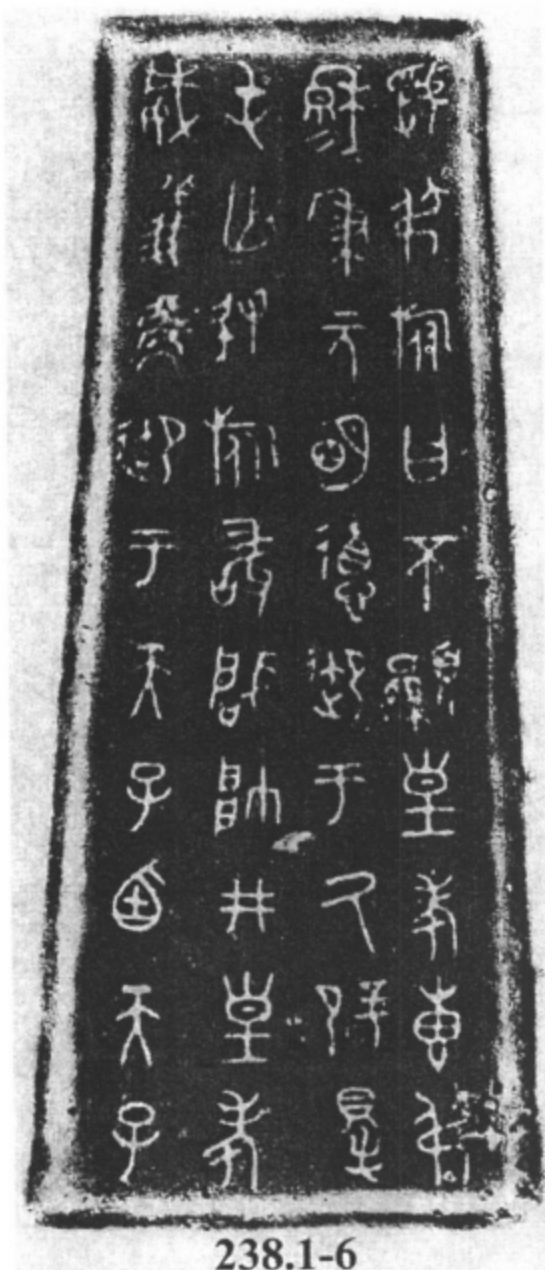 虢叔旅曰不顯皇考叀叔
穆=秉元明德御于氒辟𢔶
屯亡敃旅敢肇帥井皇考
威義御于天子迺天子
238.1-6